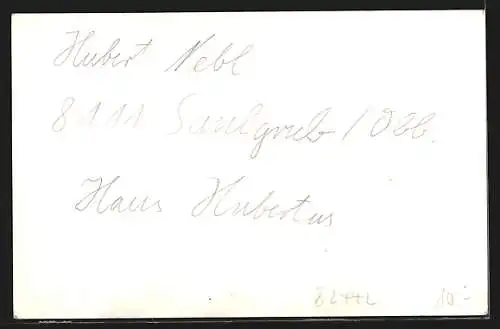 Hubert Nebl
8111 Saulgrub / Obb.
Haus Hubertus
10.-